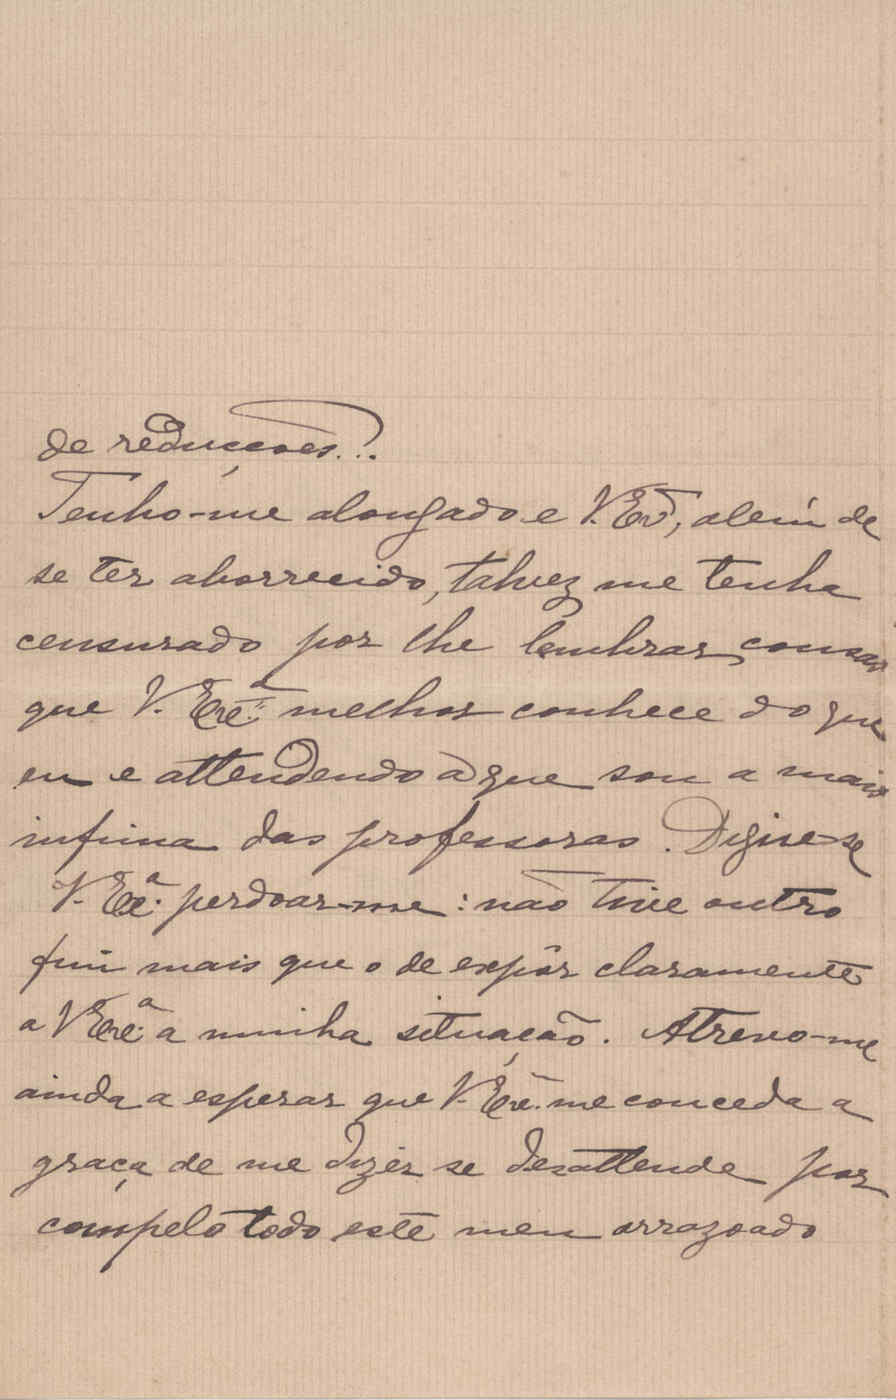 de reducções...
Tenho-me alongado e V. Exª, alem de
se ter aborrecido, talvez me tenha
censurado por lhe lembrar cousas
que V. Excª melhor conhece do que
eu e attendendo a que sou a mais
infima das professoras. Digne-se
V. Excª perdoar-me: não tive outro
fim mais que o de expôr claramente
a V. Excª a minha situação. Atrevo-me
ainda a esperar que V. Excª me conceda a
graça de me dizer se desattende por
completo todo este meu arrazoado